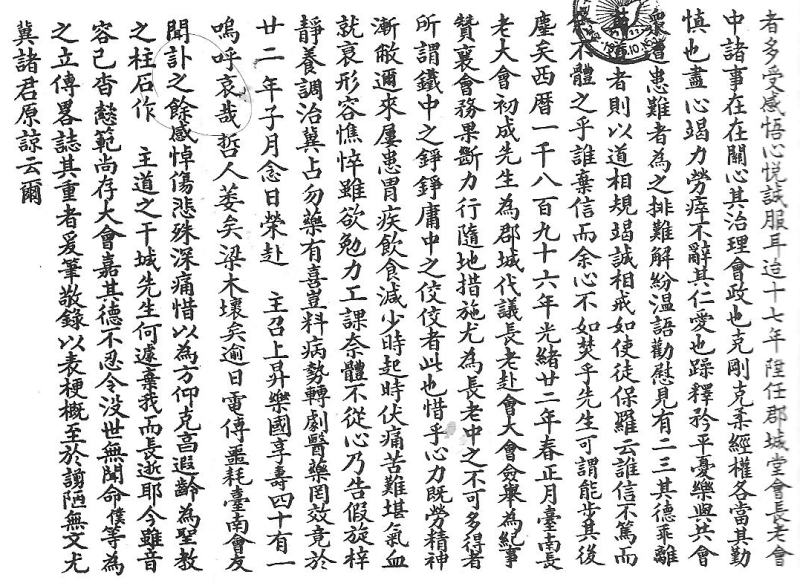 者多受感悟心悅誠服耳迨十七年陞任郡城堂會長老會
中諸事在在關心其治理會政也克剛克柔經權各當其勤
慎也盡心竭力勞瘁不辭其仁愛也躁釋矜平憂樂與共會
衆遭患難者為之排難解紛温語勸慰見有二三其德乖離
者則以道相規竭誠相戒如使徒保羅云誰信不篤而
不體之乎誰棄信而余心不如焚乎先生可謂能步其後
塵矣西曆一千八百九十六年光緒廿二年春正月臺南長
老大會初成先生為郡城代議長老赴會大會僉舉為紀事
贊襄會務果斷力行隨地措施尤為長老中之不可多得者
所謂鐵中之錚錚庸中之佼佼者此也惜乎心力既勞精神
漸敝邇來屢患胃疾飲食減少時起時伏痛苦難堪氣血
就衰形容憔悴雖欲勉力工課奈體不從心乃告假旋梓
靜養調治冀占勿藥有喜豈料病勢轉劇醫藥罔效竟於
廿二年子月念日榮赴　主召上昇樂國享壽四十有一
嗚呼哀哉哲人萎矣梁木壞矣逾日電傳噩耗臺南會友
聞訃之餘感悼傷悲殊深痛惜以為方仰克高遐齡為聖教
之柱石作　主道之干城先生何遽棄我而長逝耶今雖音
容已杳懿範尚存大會嘉其德不忍令没世無聞命僕等為
之立傳畧誌其重者爰筆敬錄以表梗概至於謭陋無文尤
冀諸君原諒云爾